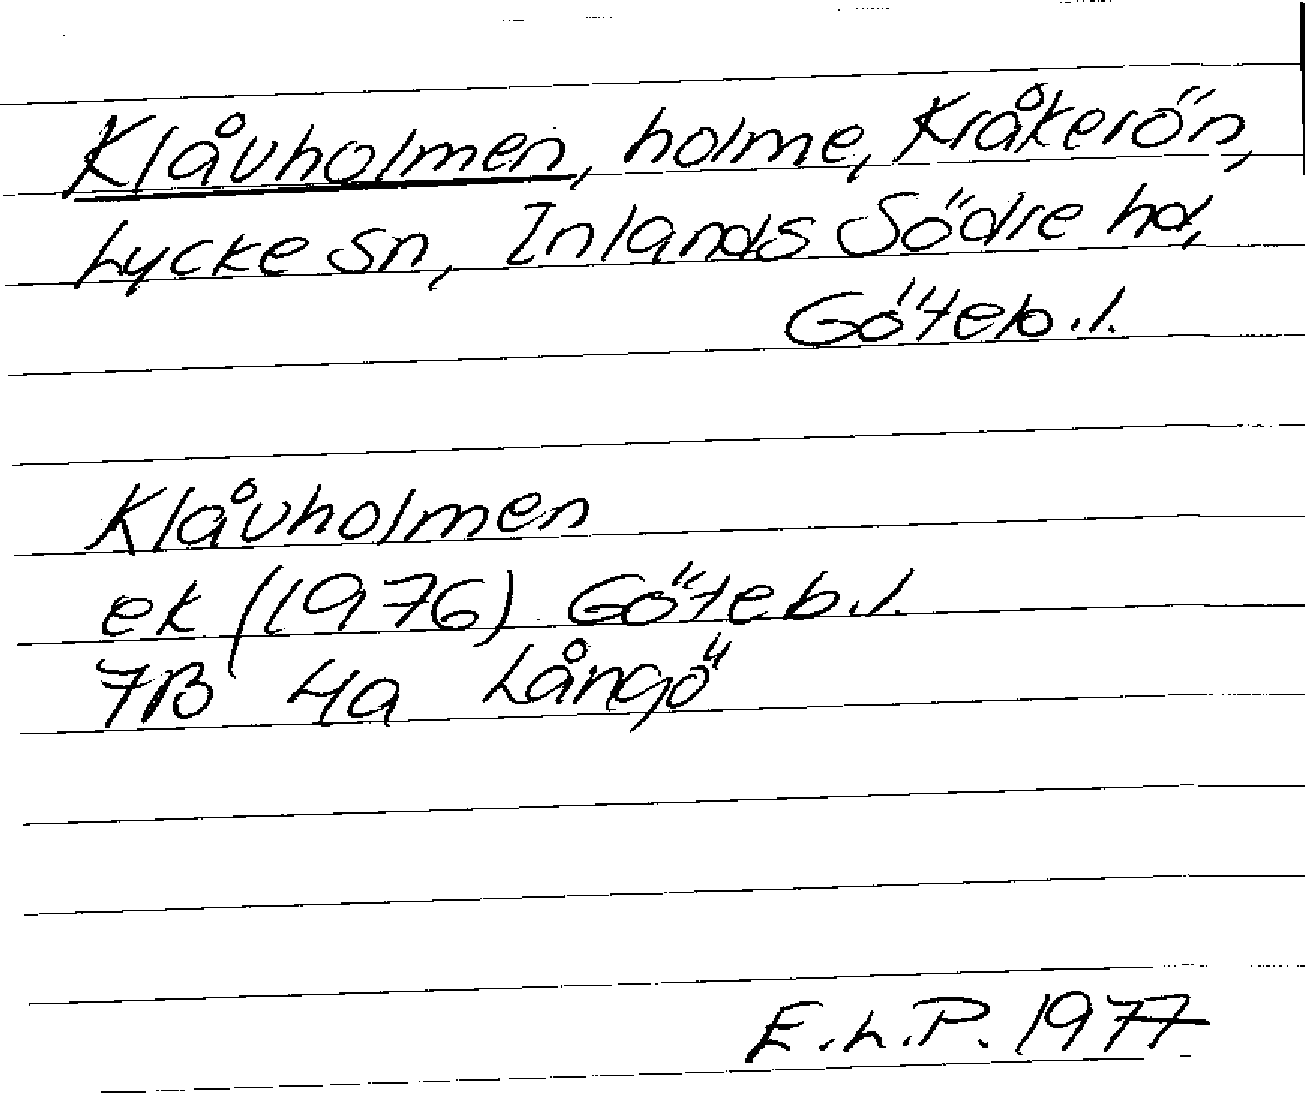 Klåvholmen, holme, Kråkerön,
Lycke sn, Inlands Södre hd,
Göteb.l.
Klåvholmen
ek (1976) Göteb.l.
7B 4a Långö
E.L.P. 1977